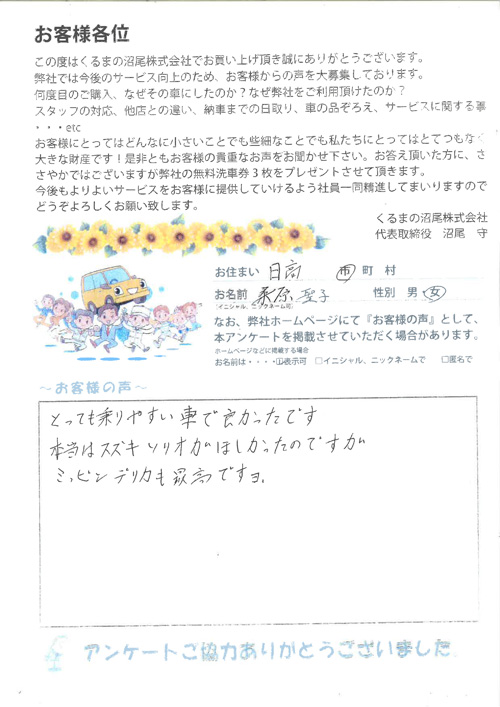 お客様各位
この度はくるまの沼尾株式会社でお買い上げ頂き誠にありがとうございます。
弊社では今後のサービス向上のため、お客様からの声を大募集しております。
何度目のご購入、なぜその車にしたのか？なぜ弊社をご利用頂けたのか？
スタッフの対応、他店との違い、納車までの日取り、車の品ぞろえ、サービスに関する事
・・・etc
お客様にとってはどんなに小さいことでも些細なことでも私たちにとってはとてつもなく
大きな財産です！是非ともお客様の貴重なお声をお聞かせ下さい。お答え頂いた方に、さ
さやかではございますが弊社の無料洗車券３枚をプレゼントさせて頂きます。
今後もよりよいサービスをお客様に提供していけるよう社員一同精進してまいりますので
どうぞよろしくお願い致します。
くるまの沼尾株式会社
代表取締役　沼尾　守
お住まい 日高 市 町 村
お名前 桑原 聖子 性別 男・女
(イニシャル、ニックネーム可)
なお、弊社ホームページにて『お客様の声』として、
本アンケートを掲載させていただく場合があります。
ホームページなどに掲載する場合
お名前は・・・・☑表示可 □イニシャル、ニックネームで □匿名で
～お客様の声～
とっても乗りやすい車で良かったです
本当はスズキ ソリオがほしかったのですが
ミッビン デリカも最高ですヨ.
アンケートご協力ありがとうございました